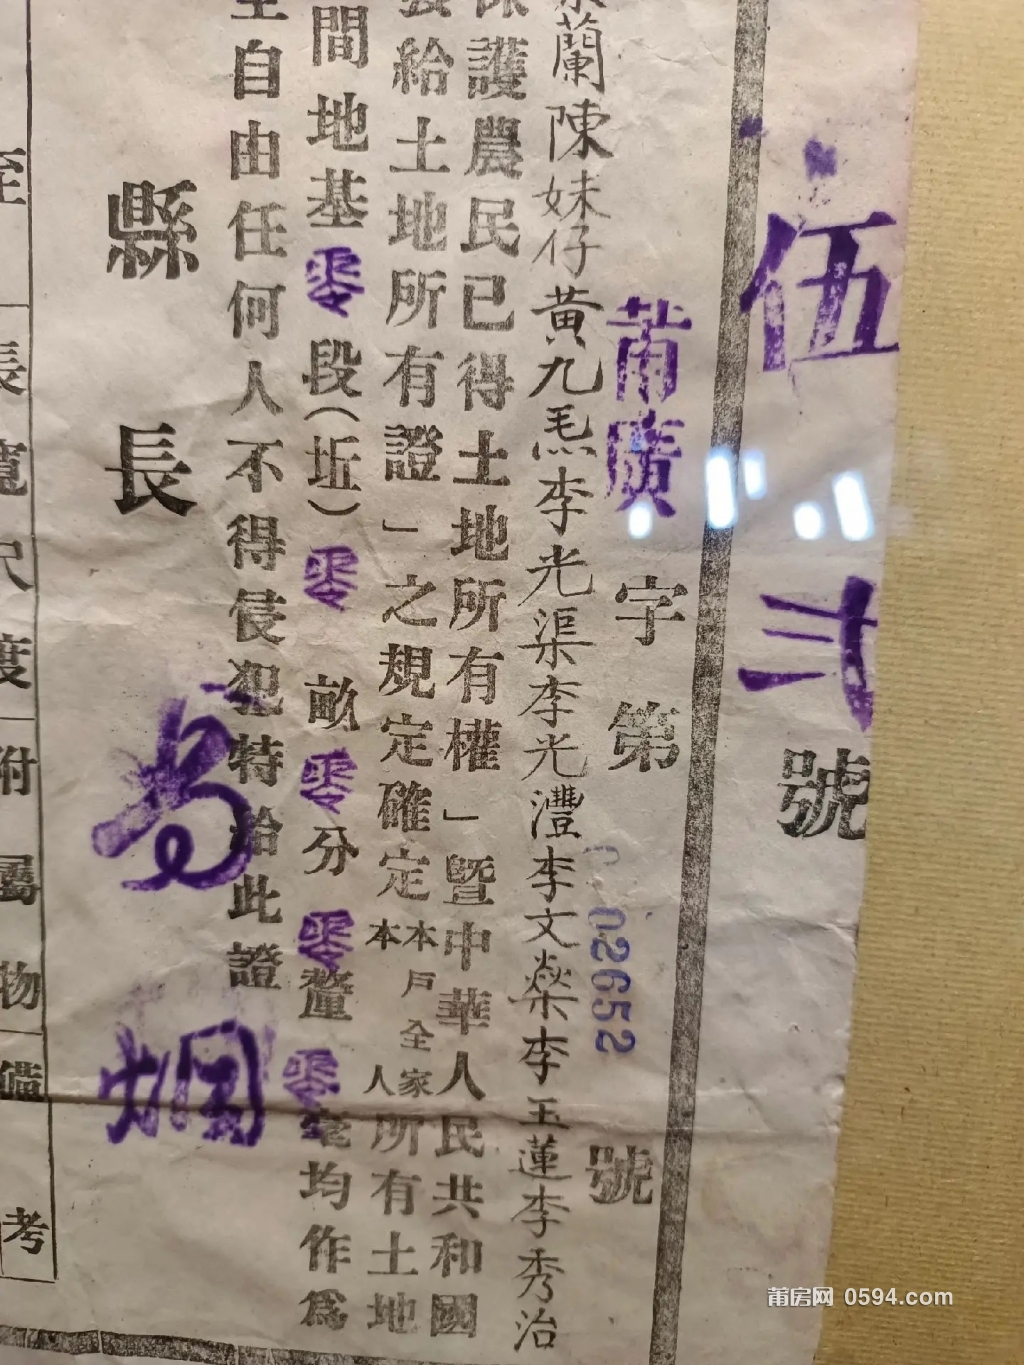 伍弍號
莆廣字第02652號
蘭陳妹仔黃九炁李光渠李光灃李文燊李玉蓮李秀治
保護農民已得土地所有權」暨中華人民共和國
發給土地所有證」之規定確定本戶全家本人所有土地
間地基零段(坵)零畝零分零釐零毫均作爲
自由任何人不得侵犯特給此證
縣長
至
長寬尺度
附屬物
備考
莆房网 0594.com